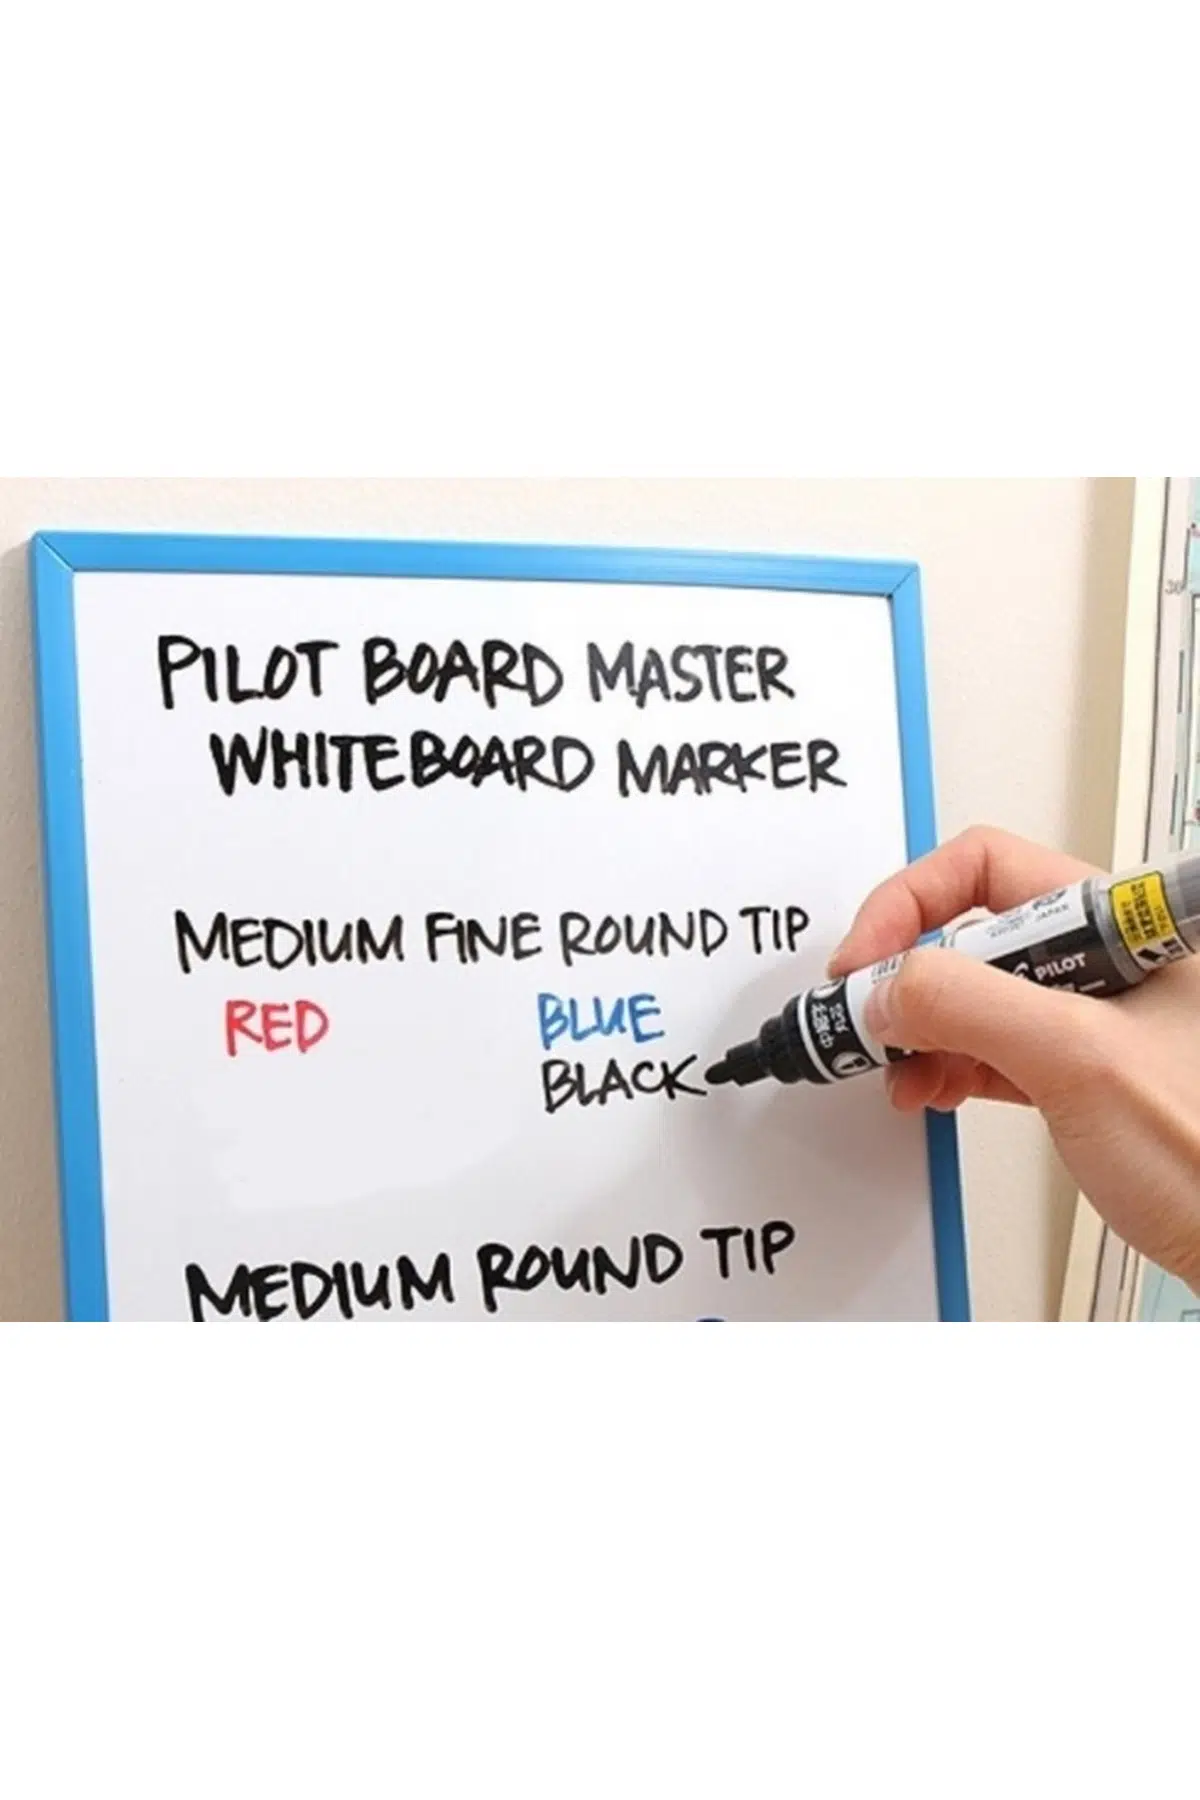 PILOT BOARD MASTER
WHITEBOARD MARKER
MEDIUM FINE ROUND TIP
RED BLUE
BLACK
MEDIUM ROUND TIP
PILOT
JAPAN